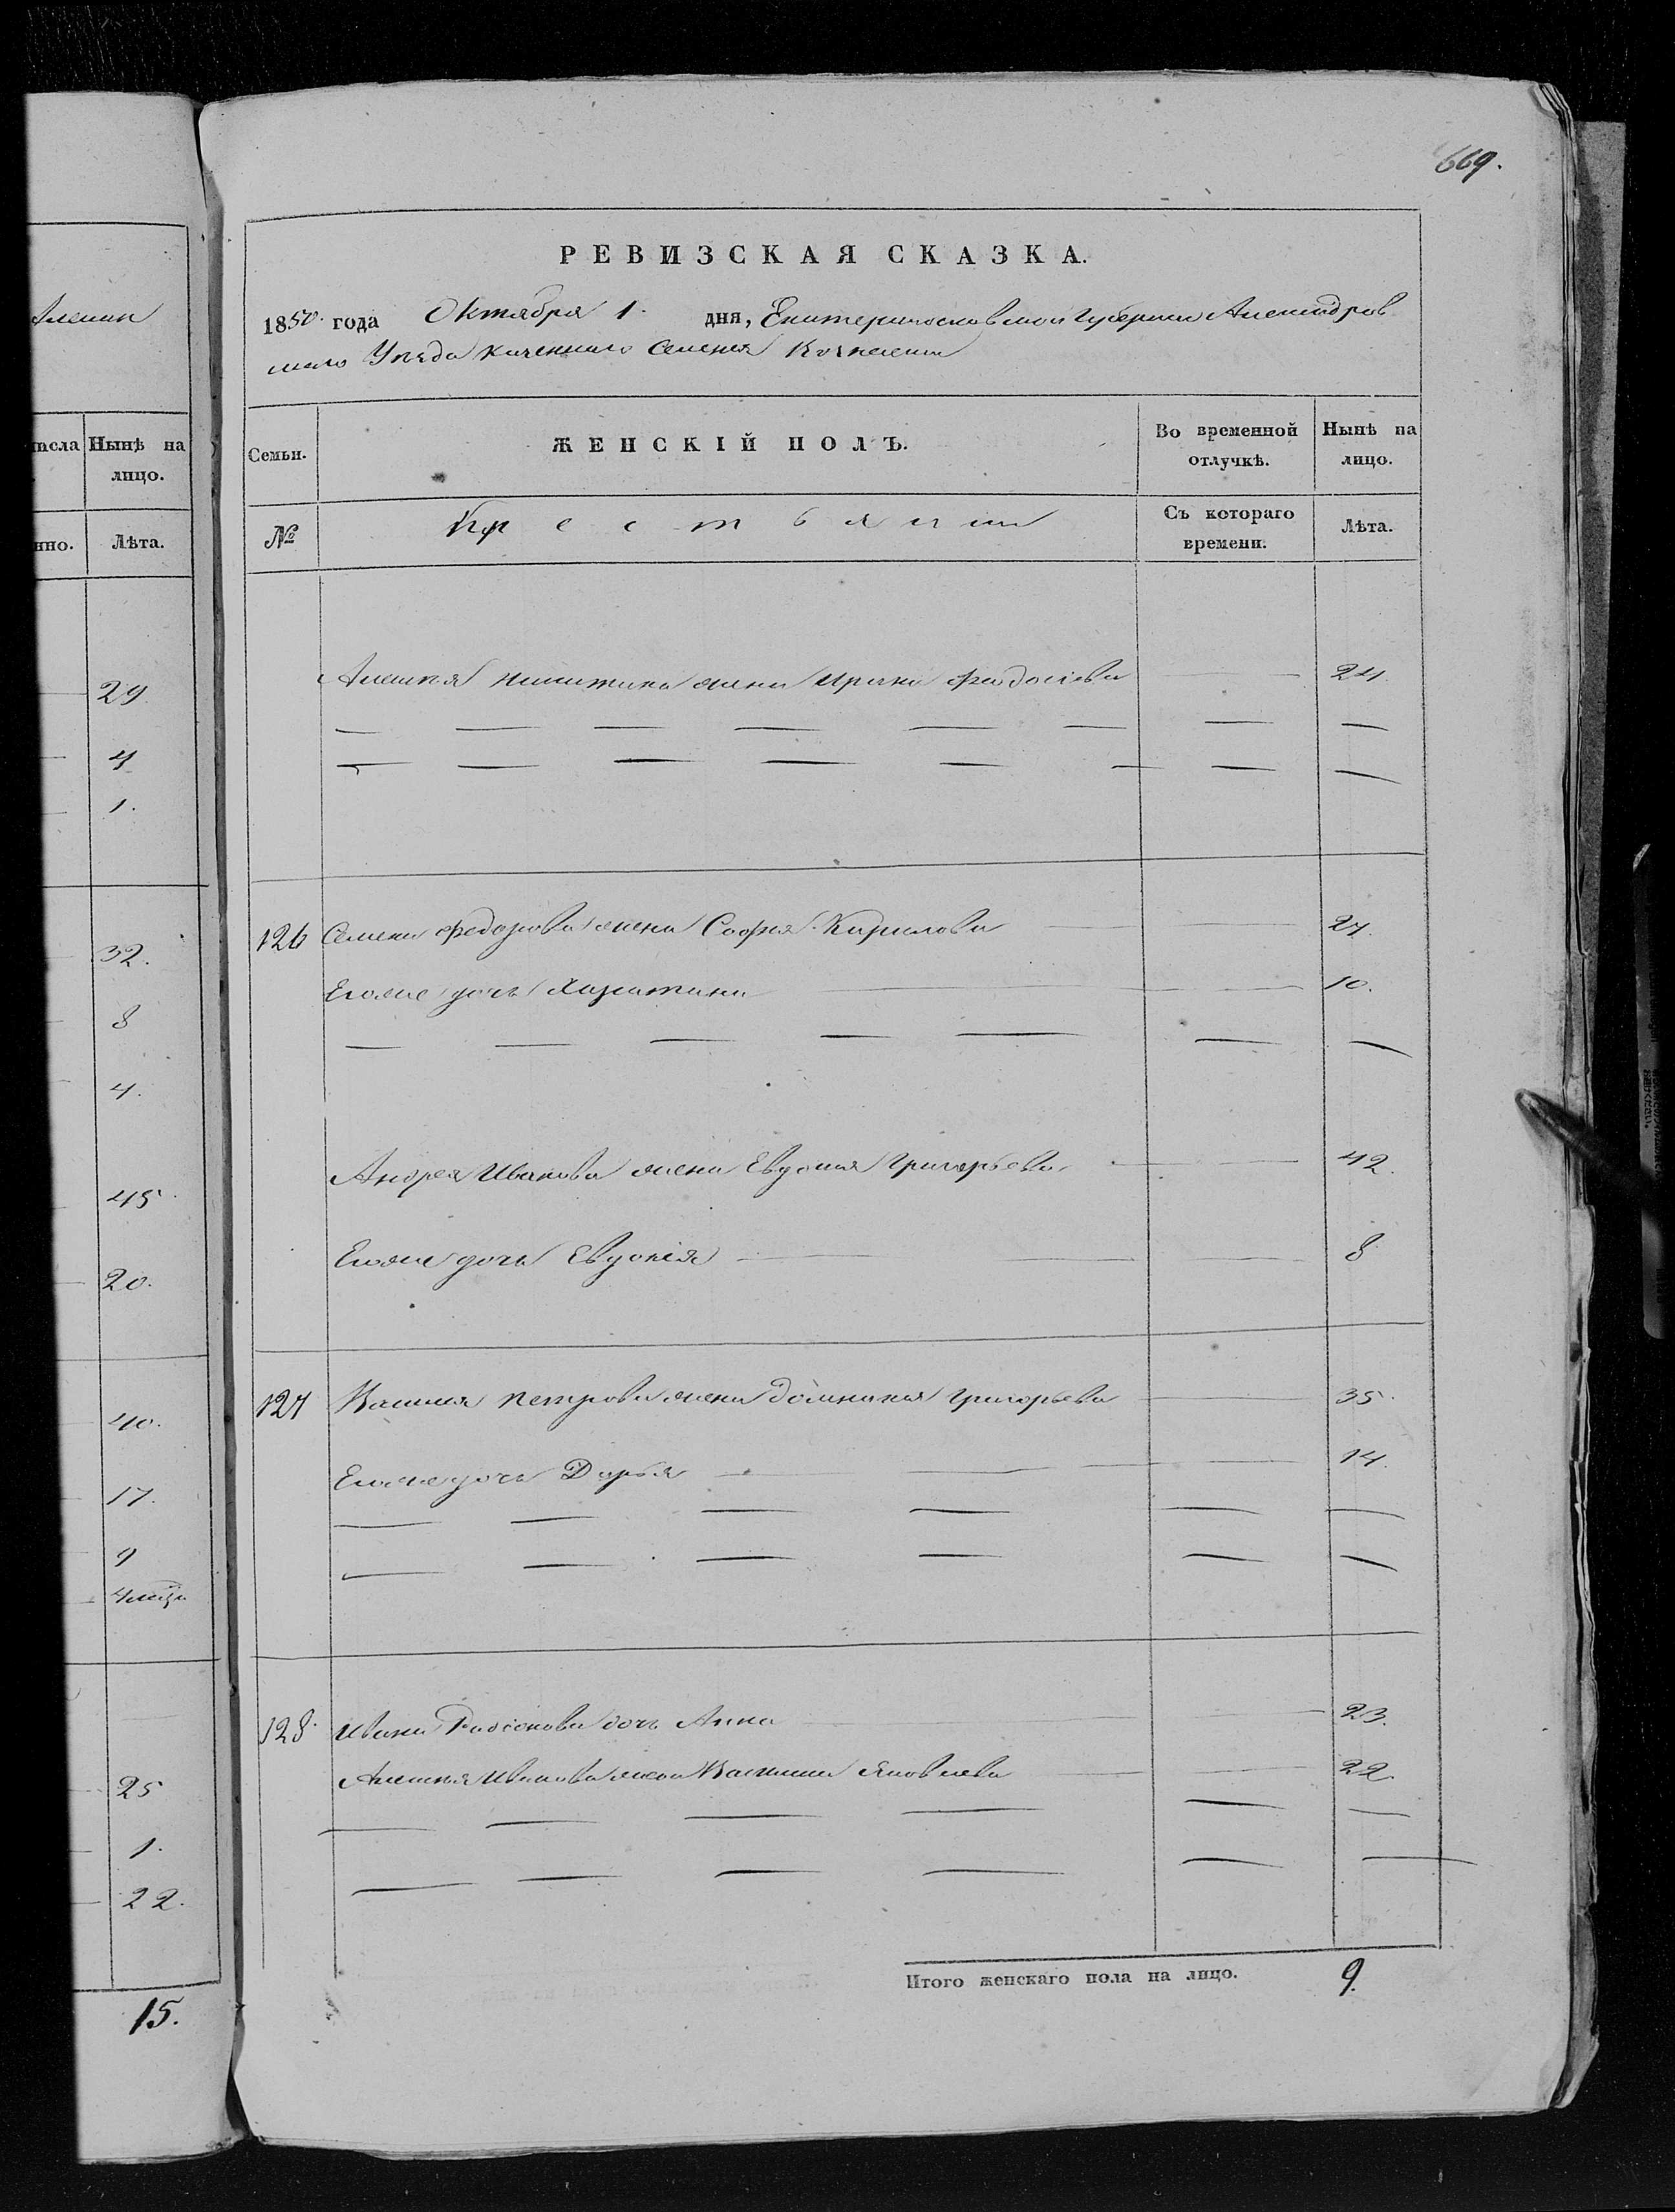 669.
Нынѣ на
лицо.
нно. Лѣта.
29
4
1.
32.
8
4.
45.
20.
40.
17.
9
25
1.
22.
15.
РЕВИЗСКАЯ СКАЗКА.
1850. года Октября 1. дня, Екатеринославской Губернии Александров
скаго Уезда казеннаго селения
Семьи. ЖЕНСКІЙ ПОЛЪ. Во временной отлучкѣ. Нынѣ на лицо.
№ Крестьяни Съ котораго времени. Лѣта.
Алексея Никитина жена Ирина Федосіева 24
126 Семена Федорова жена Софья Кирилова 27.
Егоже дочь Харитина 10.
Андрея Иванова жена Евдокия Григорьева 42.
Егоже дочь Евдокія 8
127 Петрова жена Домникия Григорьева 35.
Егоже дочь Дарья 14.
128. Ивана Родіонова дочь Анна 23.
Алексея Иванова жена Яковлева 22.
Итого женскаго пола на лицо. 9.